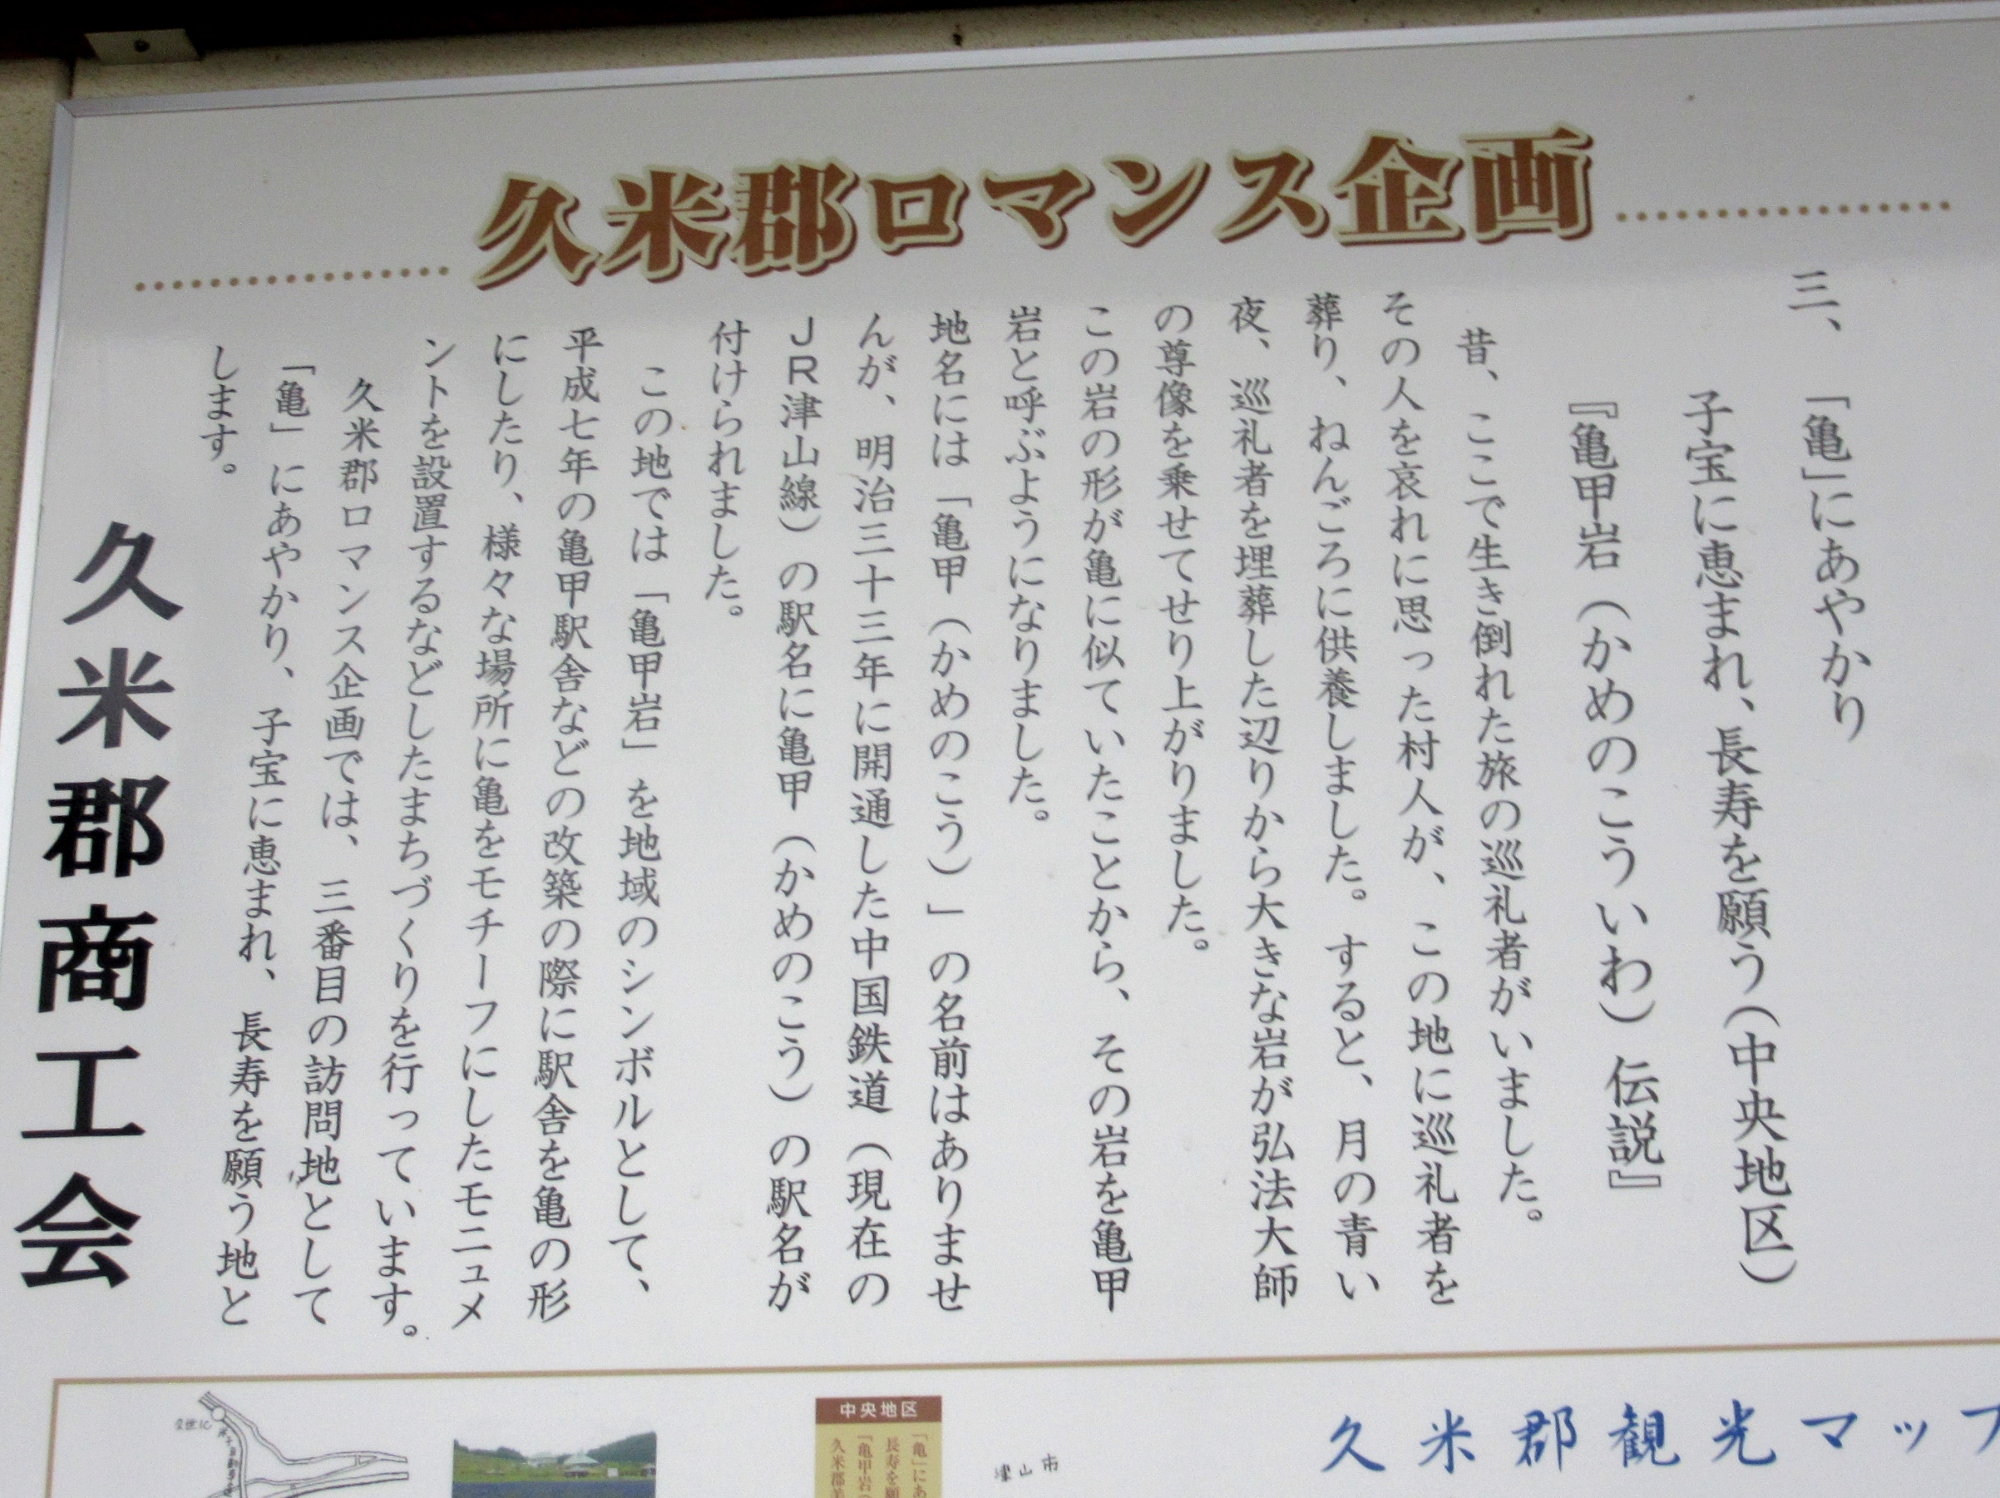 久米郡ロマンス企画
三、「亀」にあやかり
子宝に恵まれ、長寿を願う(中央地区)
『亀甲岩(かめのこういわ)伝説』
昔、ここで生き倒れた旅の巡礼者がいました。
その人を哀れに思った村人が、この地に巡礼者を
葬り、ねんごろに供養しました。すると、月の青い
夜、巡礼者を埋葬した辺りから大きな岩が弘法大師
の尊像を乗せてせり上がりました。
この岩の形が亀に似ていたことから、その岩を亀甲
岩と呼ぶようになりました。
地名には「亀甲(かめのこう)」の名前はありませ
んが、明治三十三年に開通した中国鉄道(現在の
JR津山線)の駅名に亀甲(かめのこう)の駅名が
付けられました。
この地では「亀甲岩」を地域のシンボルとして、
平成七年の亀甲駅舎などの改築の際に駅舎を亀の形
にしたり、様々な場所に亀をモチーフにしたモニュメ
ントを設置するなどしたまちづくりを行っています。
久米郡ロマンス企画では、三番目の訪問地として
「亀」にあやかり、子宝に恵まれ、長寿を願う地と
します。
久米郡商工会
中央地区
「亀」にあ
長寿を願
「亀甲岩(
久米郡美
津山市
久米郡観光マップ